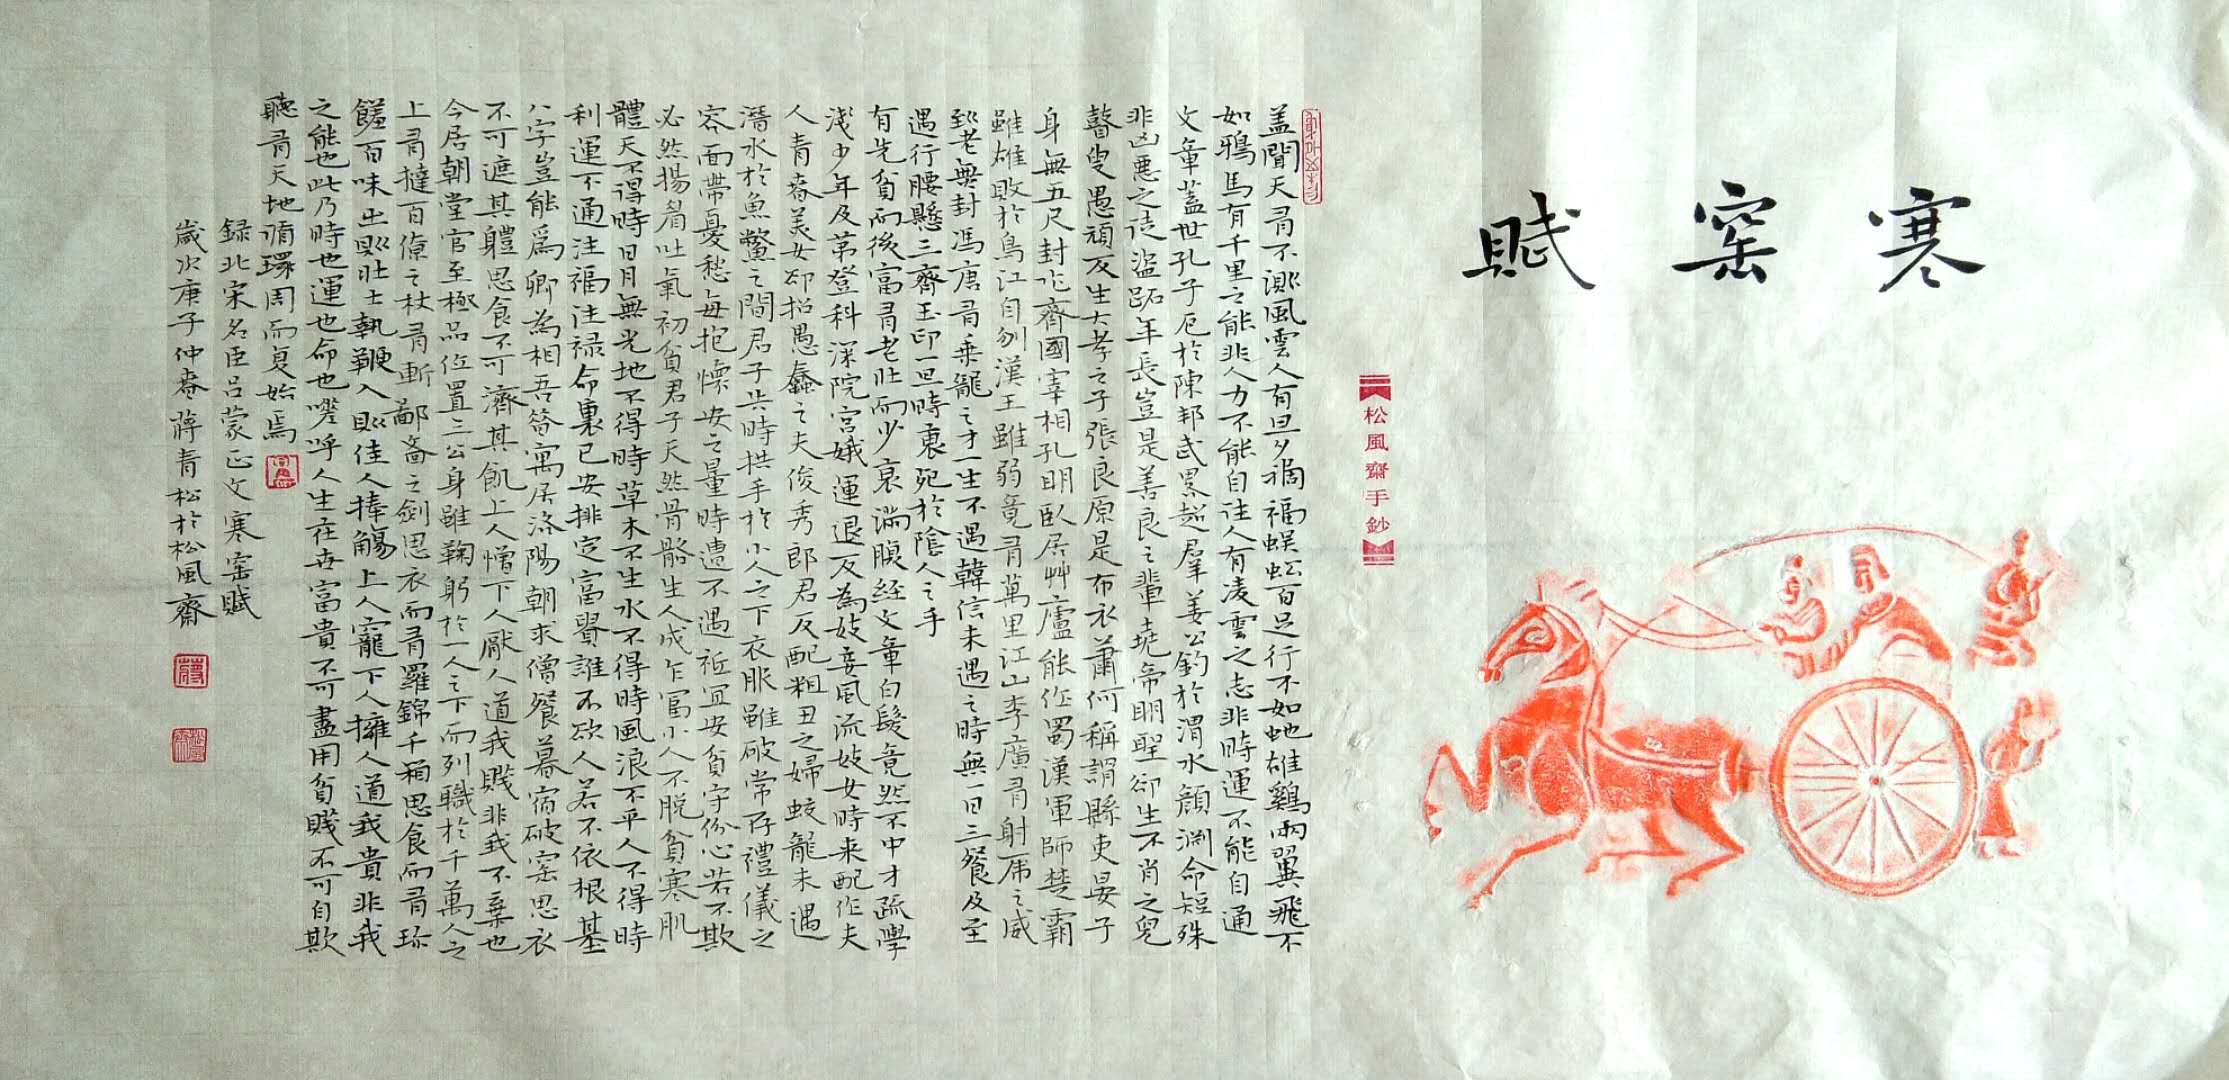 寒窑賦
松風齋手鈔
盖聞天有不測風雲人有旦夕禍福蜈蚣百足行不如蛇雄鷄兩翼飛不
如鴉馬有千里之能非人力不能自往人有凌雲之志非時運不能自通
文章蓋世孔子厄於陳邦武累超羣姜公釣於渭水顔淵命短殊
非凶惡之徒盜跖年長豈是善良之輩堯帝明聖卻生不肖之兒
瞽叟愚頑反生大孝之子張良原是布衣蕭何稱謂縣吏晏子
身無五尺封作齊國宰相孔明臥居艸廬能作蜀漢軍師楚霸
雖雄敗於烏江自刎漢王雖弱竟有萬里江山李廣有射虎之威
到老無封馮唐有乘龍之才一生不遇韓信未遇之時無一日三餐及至
遇行腰懸三齊玉印一旦時衰死於陰人之手
有先貧而後富有老壯而少衰滿腹經文章白髮竟然不中才疏學
淺少年及第登科深院宮娥運退反為妓妾風流妓女時来配作夫
人青春美女却招愚蠢之夫俊秀郎君反配粗丑之婦蛟龍未遇
潛水於魚鱉之間君子失時拱手於小人之下衣服雖破常存禮儀之
容面帶憂愁每抱懷安之量時遭不遇祗宜安貧守份心若不欺
必然揚眉吐氣初貧君子天然骨骼生人成乍富小人不脫貧寒肌
體天不得時日月無光地不得時草木不生水不得時風浪不平人不得時
利運不通注福注禄命裏已安排定富貴誰不欲人若不依根基
八字豈能爲卿為相吾昝寓居洛陽朝求僧餐暮宿破窑思衣
不可遮其軆思食不可濟其飢上人憎下人厭人道我賤非我不棄也
今居朝堂官至極品位置三公身雖鞠躬於一人之下而列職於千萬人之
上有撻百僚之杖有斬鄙吝之劍思衣而有羅錦千箱思食而有珎
饈百味出則壯士執鞭入則佳人捧觴上人寵下人擁人道我貴非我
之能也此乃時也運也命也嗟呼人生在世富貴不可盡用貧賤不可自欺
聽有天地循環周而复始焉
録北宋名臣吕蒙正文寒窑賦
歲次庚子仲春蔣青松於松風齋